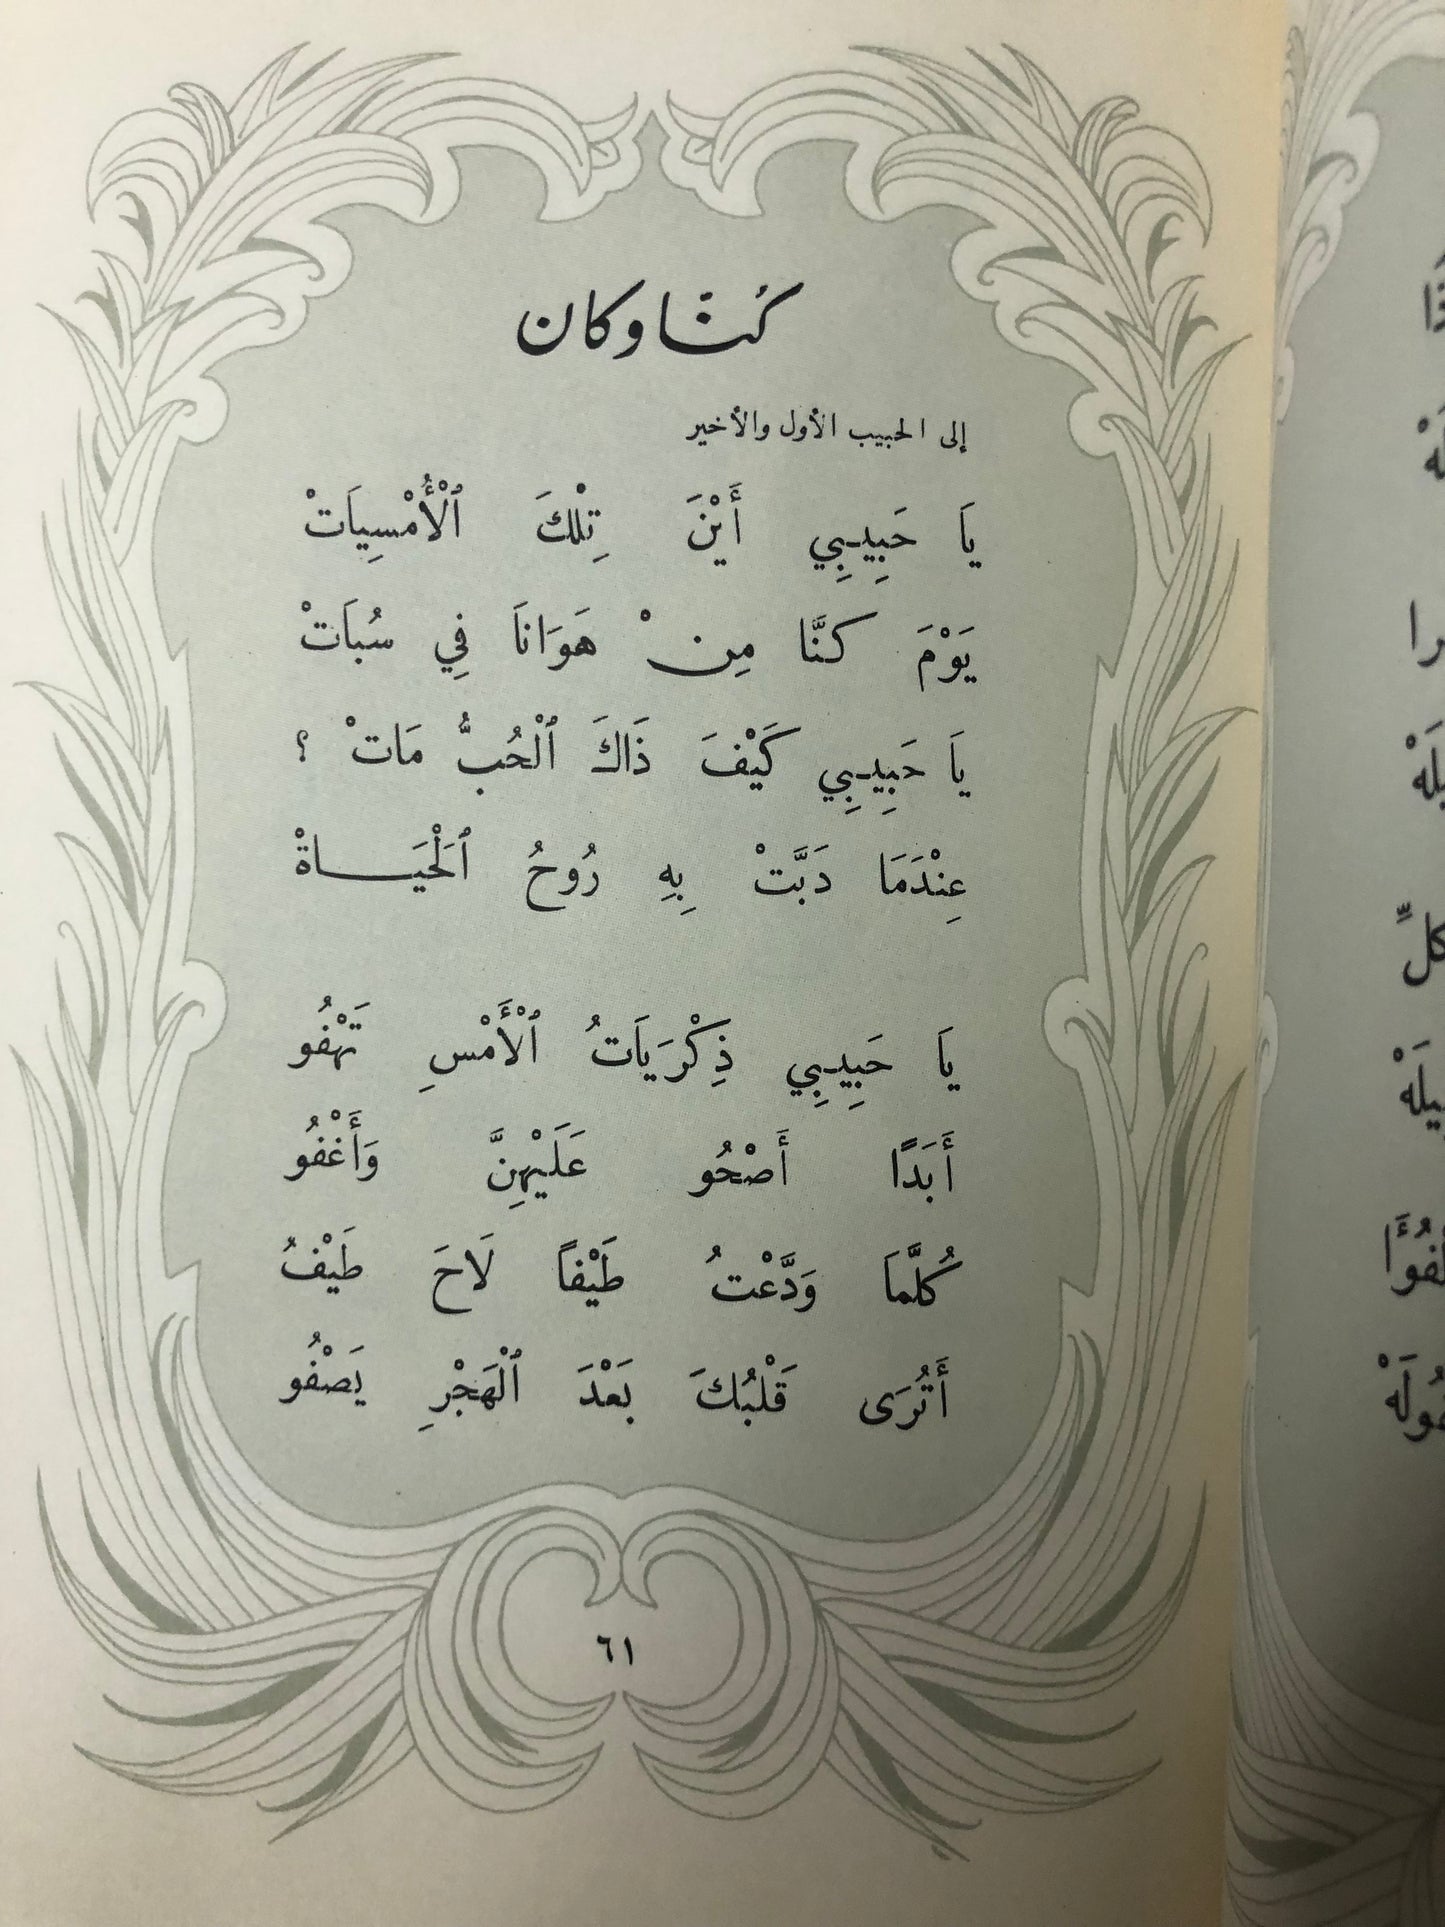 كُنَّا وكان
إلى الحبيب الأول والأخير
يَا حَبِيبِي أَيْنَ تِلْكَ ٱلْأُمْسِيَاتْ
يَوْمَ كنَّا مِنْ هَوَانَا فِي سُبَاتْ
يَا حَبِيبِي كَيْفَ ذَاكَ ٱلْحُبُّ مَاتْ ؟
عِنْدَمَا دَبَّتْ بِهِ رُوحُ ٱلْحَيَاةْ
يَا حَبِيبِي ذِكْرَيَاتُ ٱلْأَمْسِ تَهْفُو
أَبَدًا أَصْحُو عَلَيْهِنَّ وَأَغْفُو
كُلَّمَا وَدَّعْتُ طَيْفاً لَاحَ طَيْفُ
أَتُرَى قَلْبُكَ بَعْدَ ٱلْهَجْرِ يَصْفُو
٦١